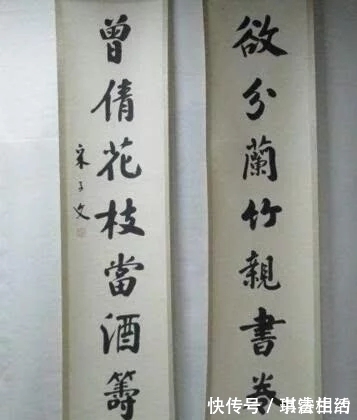 欲分蘭竹親書卷
曾倩花枝當酒籌
宋子文
快传号 /